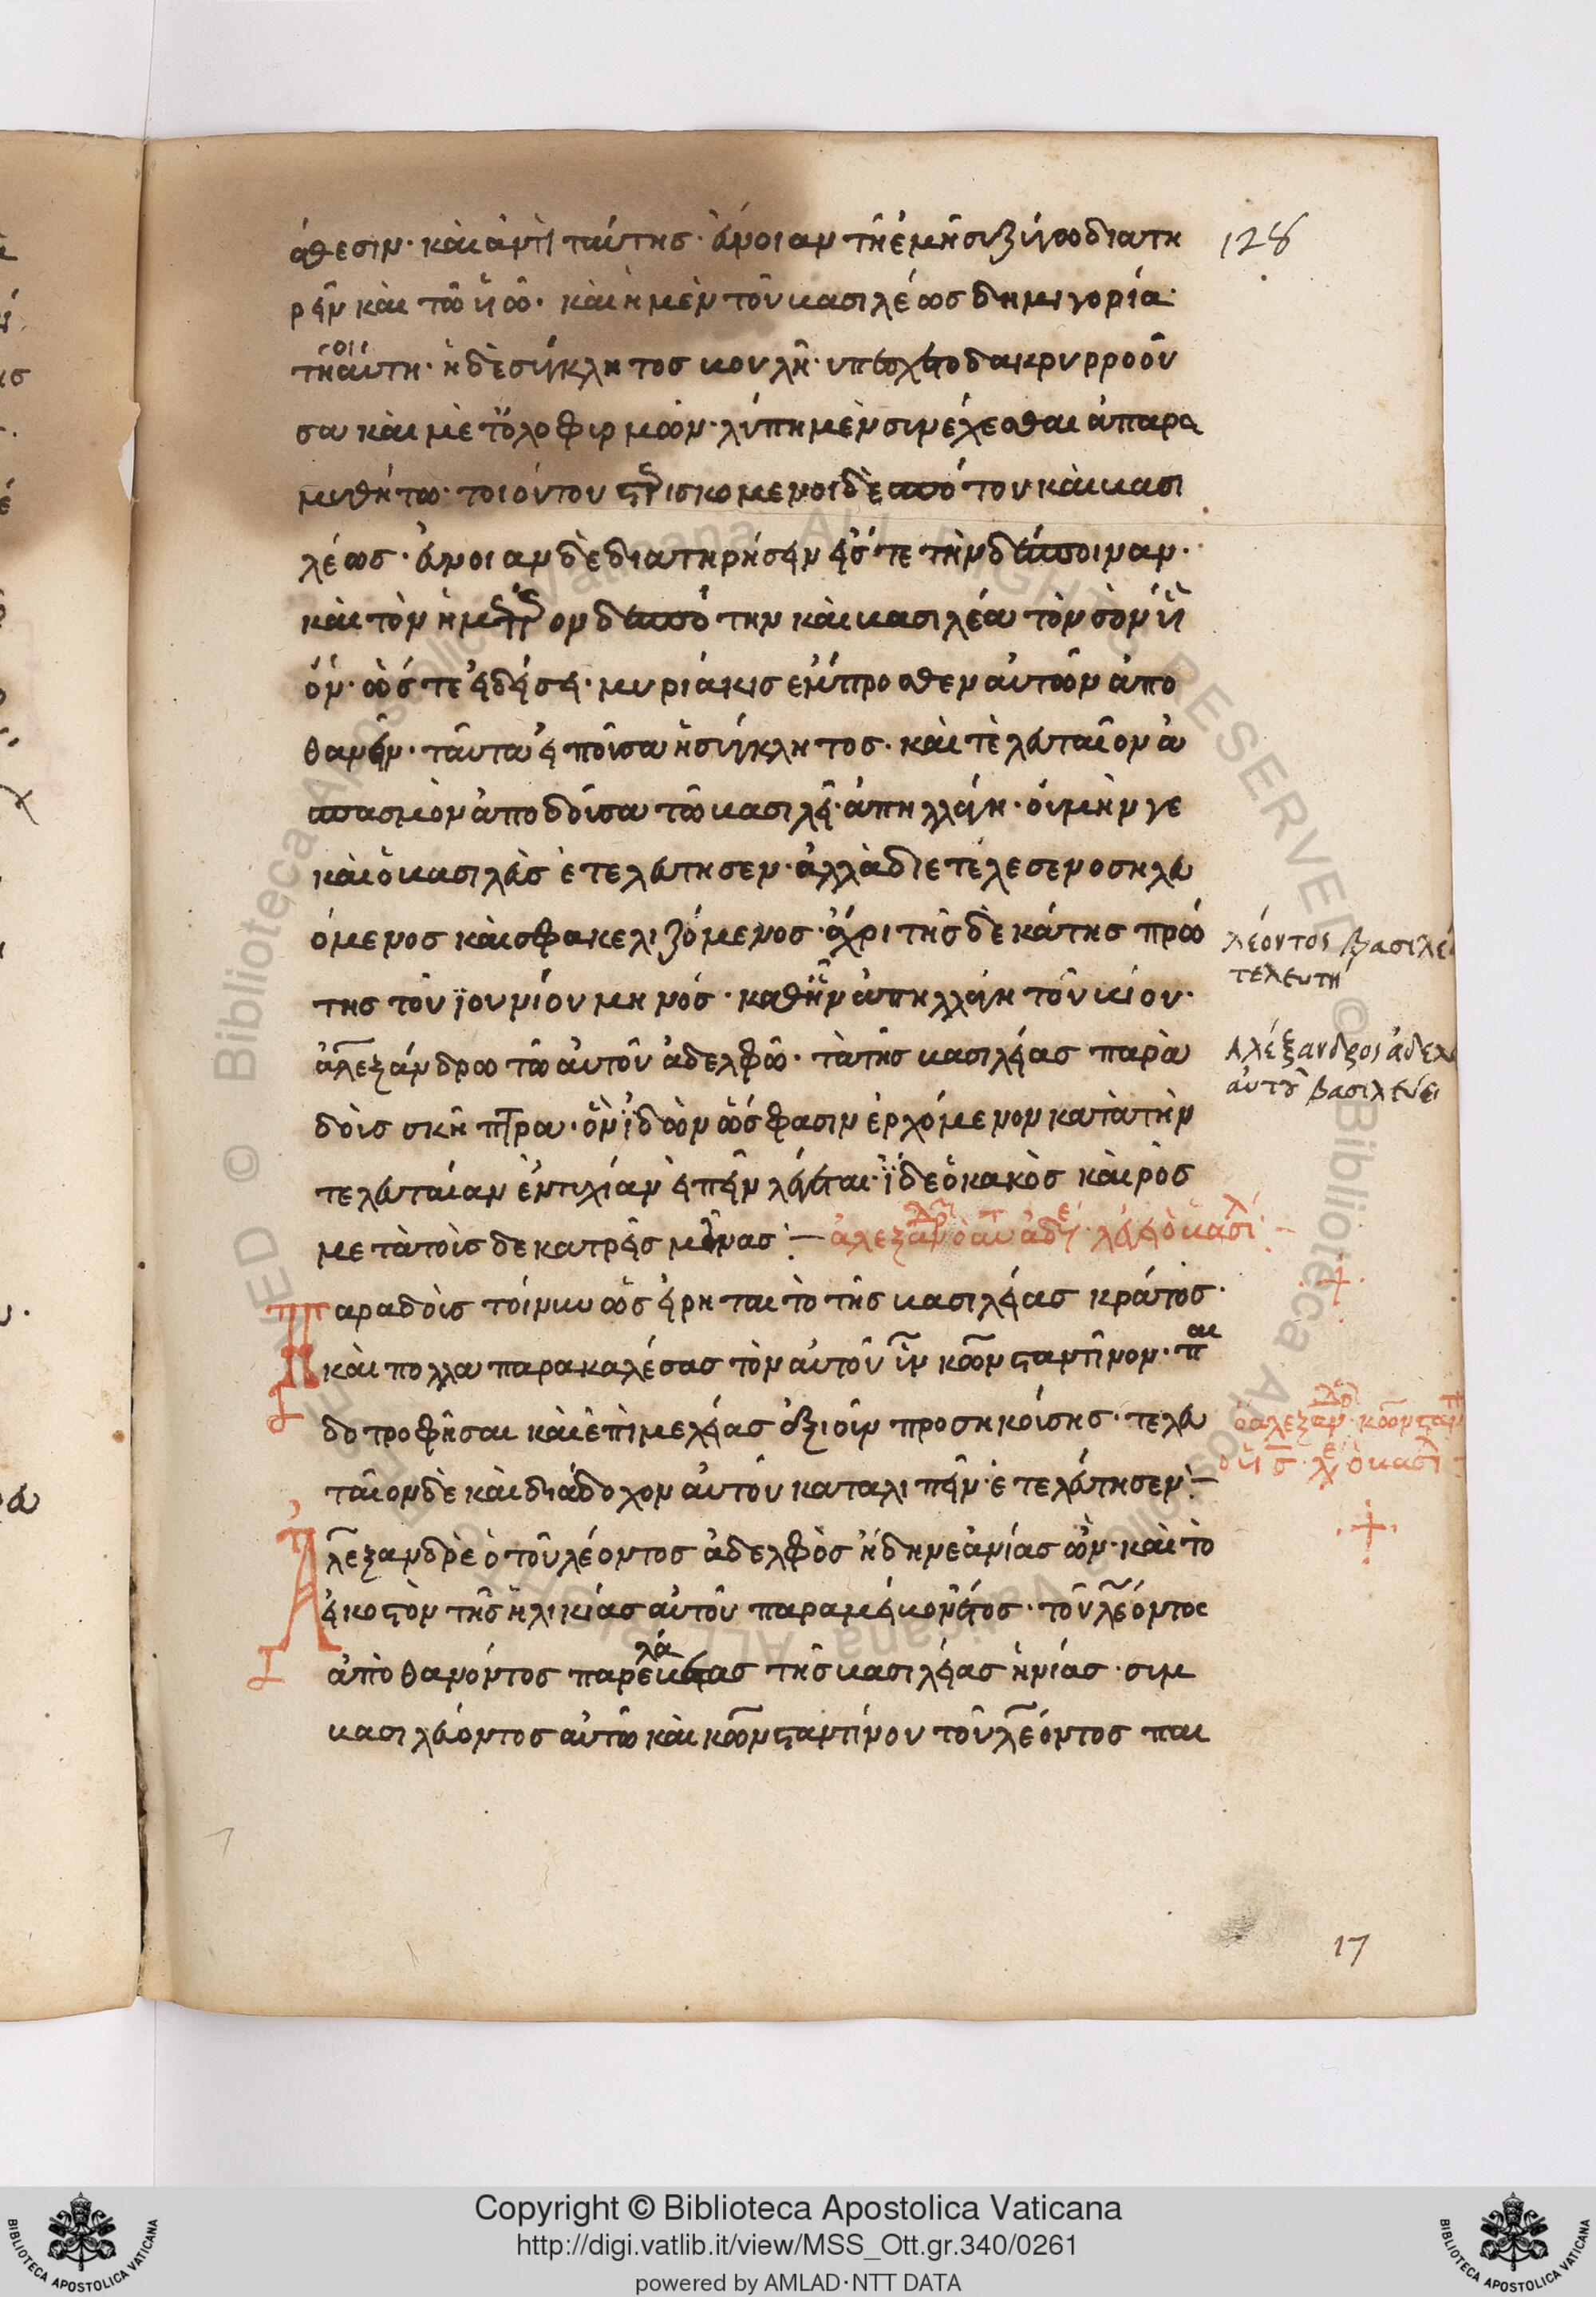 άθεσιν· καὶ ἀντὶ ταύτης· εὔνοιαν τῆ ἐμῆ συζύγω διατη
ρεῖν καὶ τῶ ϋῶ· καὶ ἡ μὲν τοῦ βασιλέως δημιγορία·
τηοιάυτη· ἡ δὲ σύγκλητος βουλὴ· ὑπὸ τούτο δακρυρροοῦ
σα καὶ μὲτ ὀλοφιρμῶν· λύπη μὲν σινέχεσθαι ἀπαρα
μυθήτω· τοιούτου στερισκομενοι δὲ δεσπότου καὶ βασι
λέως· εὔνοιαν δὲ διατηρήσειν εἴς τε τὴν δέσποιναν·
καὶ τὸν ἡμέτερον δεσπότην καὶ βασιλέα τὸν σὸν ϋ
όν· ὥς τε εἰ δεήσει· μυριάκις ἔμπροσθεν αὐτῶν ἀπο
θανεῖν· ταῦτα εἰποῦσα ἡ σύγκλητος· καὶ τελευταῖον ἀ
σπασμὸν ἀποδοῦσα τῶ βασιλεῖ· ἀπηλλάγη· οὐ μὴν γε
καὶ ὁ βασιλεὺς ἐτελεύτησεν· ἀλλὰ διετέλεσε νοσηλευ
όμενος καὶ σφακελιζόμενος· ἄχρι τῆς δεκάτης πρώ
της τοῦ ϊουνίου μηνός· καθ' ἣν ἀπηλλάγη τοῦ βίου·
ἀλεξάνδρω τῶ αὐτοῦ ἀδελφῶ· τὰ τῆς βασιλείας παρὰ
δοὺς σκῆπτρα· ὃν ϊδὼν ὥς φασιν ἐρχόμενον κατὰ τὴν
τελευταίαν ἐντυχίαν εἰπεῖν λέγεται· ϊδε ὁ κακὸς καὶρὸς
μετὰ τοὺς δεκατρεῖς μῆνας :–
Παραδοὺς τοίνυν ὡς εἴρηται τὸ τῆς βασιλείας κράτος·
καὶ πολλα παρακαλέσας τὸν αὐτοῦ ϋν κωνσταντῖνον· παι
δοτροφῆσαι καὶ ἐπιμελείας ἀξιοῦν προσηκούσης· τελευ
ταῖον δὲ καὶ διάδοχον αὐτοῦ καταλιπεῖν· ἐτελεύτησεν :–
Ἀλεξανδρὲ ὁ τοῦ λέοντος ἀδελφὸς ἤδη νεανίας ὢν· καὶ τὸ
εἰκοστὸν τῆς ἡλικίας αὐτοῦ παραμείβοντος· τοῦ λέοντος
ἀπὸθανόντος παρέλαβε τας τῆς βασιλείας ἡνίας· σιμ
βασιλεύοντος αὐτῶ καὶ κωνσταντίνου τοῦ λέοντος παι
128
λέοντος βασιλέ
τελευτὴ
Ἀλέξανδρος ἀδελ
αὐτοῦ βασιλεύει
17
Copyright © Biblioteca Apostolica Vaticana
http://digi.vatlib.it/view/MSS_Ott.gr.340/0261
powered by AMLAD·NTT DATA